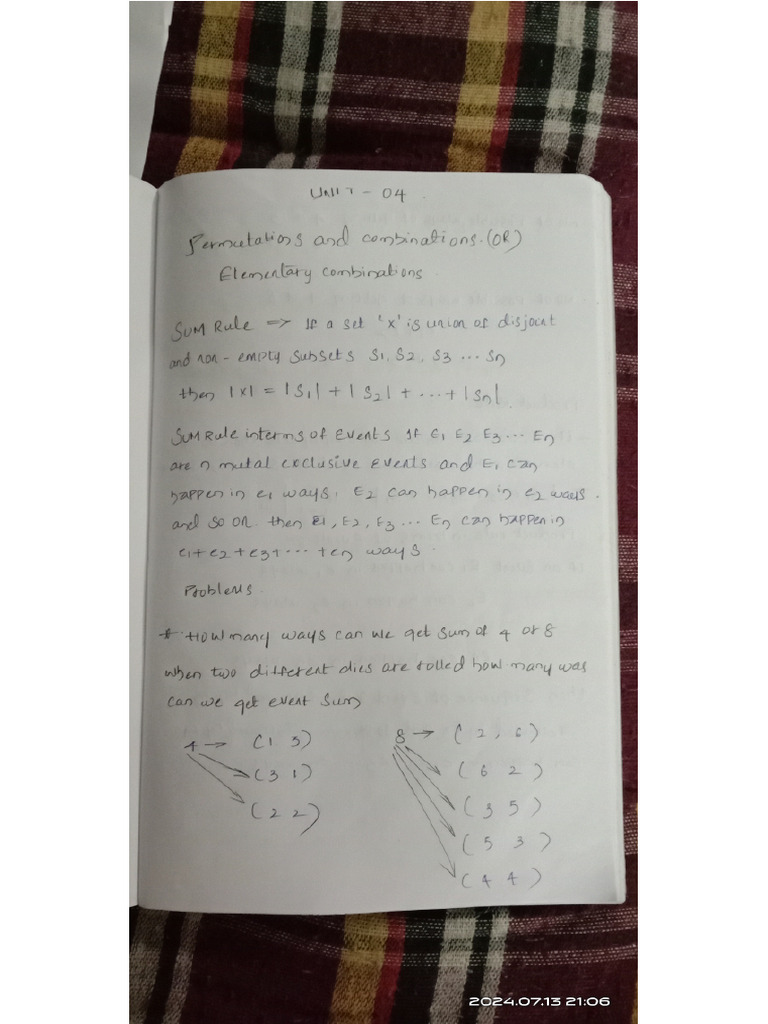 UNIT - 04
Permutations and combinations. (OR)
Elementary combinations.
SUM Rule => If a set 'x' is union of disjoint
and non-empty subsets S1, S2, S3 ... Sn
then |x| = |S1| + |S2| + ... + |Sn|.
SUM Rule interms of Events If E1 E2 E3 ... En
are n mutal exclusive events and E1 can
happen in e1 ways, E2 can happen in e2 ways.
and so on. then E1, E2, E3 ... En can happen in
e1+e2+e3+...+en ways.
Problems.
* How many ways can we get sum of 4 or 8
when two different dies are rolled how many was
can we get event sum
4 → (1 3) 8 → (2, 6)
(3 1) (6 2)
(2 2) (3 5)
(5 3)
(4 4)
2024.07.13 21:06